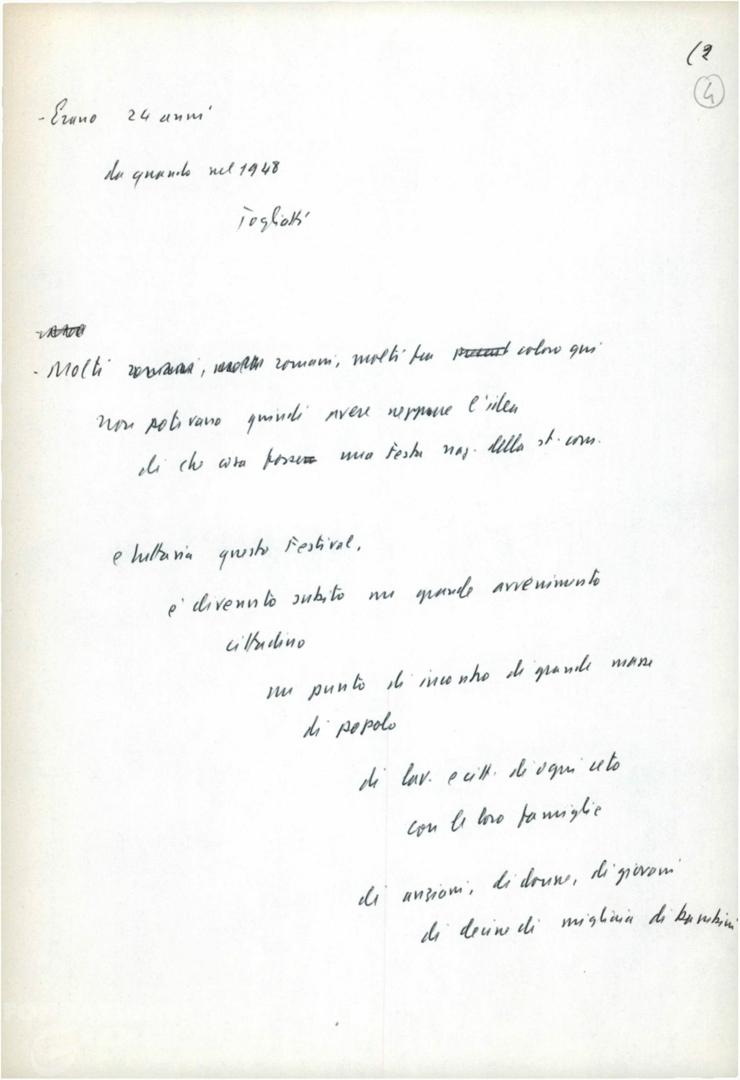 (2
4
- Erano 24 anni
da quando nel 1948
Togliatti
- Molti romani, molti romani, molti tra coloro qui
non potevano quindi avere neppure l'idea
di che cosa fosse una Festa naz. della st. com.
e tuttavia questo Festival,
è divenuto subito un grande avvenimento
cittadino
un punto di incontro di grande masse
di popolo
di lav. e citt. di ogni ceto
con le loro famiglie
di anziani, di donne, di giovani
di decine di migliaia di bambini